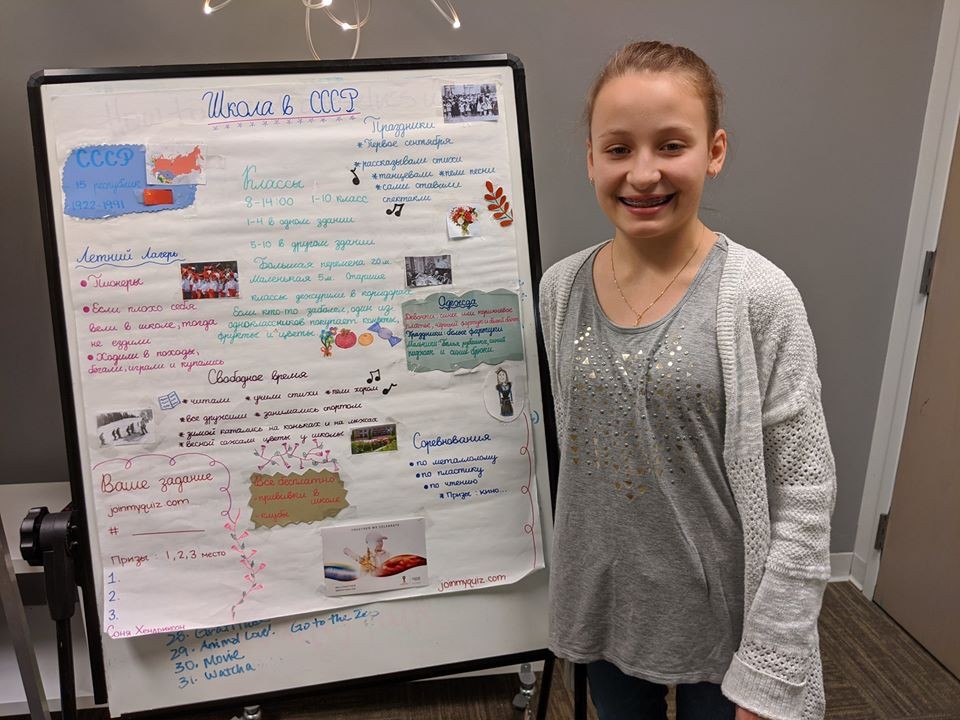 Школа в СССР
СССР
15 республик
1922-1991
Классы
8-14:00 1-10 класс
1-4 в одном здании
5-10 в другом здании
Большая перемена 20м.
Маленькая 5м. Старшие
классы дежурили в коридорах
Если кто-то заболел, один из
одноклассников покупает конфеты,
фрукты и цветы.
Праздники
*Первое сентября
*рассказывали стихи
*танцевали *пели песни
*сами ставили
спектакли
Летний Лагерь
• Пионеры
• Если плохо себя
вели в школе, тогда
не ездили
• Ходили в походы,
бегали, играли и купались
Одежда
Девочки: синее или коричневое
платье, чёрный фартук и белый
Праздники: белые фартуки
Мальчики: Белая рубашка, синий
пиджак и синий брюки.
Свободное время
*читали *учили стихи *пели хором
*все дружили *занимались спортом
*зимой катались на коньках и на лыжах
*весной сажали цветы у школы
Соревнования
• по металлолому
• по пластику
• по чтению
*Призы: кино...
Ваше задание
joinmyquiz.com
#
Призы: 1,2,3 место
1.
2.
3.
Соня Хендриксон
Всё бесплатно
-прививки в
школе
-клубы
TOGETHER WE CELEBRATE
joinmyquiz.com
28.
29. Animal Love! Go to the Zoo?
30. Movie
31. Watcha